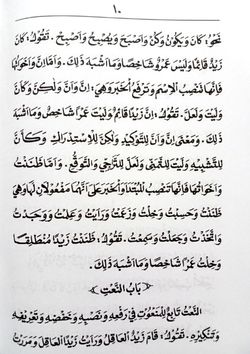 ١٠
نَحْوُ: كَانَ وَيَكُونُ وَكُنْ وَأَصْبَحَ وَيُصْبِحُ وَأَصْبِحْ. تَقُولُ: كَانَ
زَيْدٌ قَائِمًا وَلَيْسَ عَمْرٌو شَاخِصًا وَمَا أَشْبَهَ ذَلِكَ. وَأَمَّا إِنَّ وَأَخَوَاتُهَا
فَإِنَّهَا تَنْصِبُ الْاِسْمَ وَتَرْفَعُ الْخَبَرَ وَهِيَ: إِنَّ وَأَنَّ وَلَكِنَّ وَكَأَنَّ
وَلَيْتَ وَلَعَلَّ. تَقُولُ: إِنَّ زَيْدًا قَائِمٌ وَلَيْتَ عَمْرًا شَاخِصٌ وَمَا أَشْبَهَ
ذَلِكَ. وَمَعْنَى إِنَّ وَأَنَّ لِلتَّوْكِيْدِ وَلَكِنَّ لِلْاِسْتِدْرَاكِ وَكَأَنَّ
لِلتَّشْبِيْهِ وَلَيْتَ لِلتَّمَنِّي وَلَعَلَّ لِلتَّرَجِّي وَالتَّوَقُّعِ. وَأَمَّا ظَنَنْتُ
وَأَخَوَاتُهَا فَإِنَّهَا تَنْصِبُ الْمُبْتَدَأَ وَالْخَبَرَ عَلَى أَنَّهُمَا مَفْعُولَانِ لَهَا وَهِيَ
ظَنَنْتُ وَحَسِبْتُ وَخِلْتُ وَزَعَمْتُ وَرَأَيْتُ وَعَلِمْتُ وَوَجَدْتُ
وَاتَّخَذْتُ وَجَعَلْتُ وَسَمِعْتُ. تَقُولُ: ظَنَنْتُ زَيْدًا مُنْطَلِقًا
وَخِلْتُ عَمْرًا شَاخِصًا وَمَا أَشْبَهَ ذَلِكَ.
﴿ بَابُ النَّعْتِ ﴾
النَّعْتُ تَابِعٌ لِلْمَنْعُوتِ فِي رَفْعِهِ وَنَصْبِهِ وَخَفْضِهِ وَتَعْرِيْفِهِ
وَتَنْكِيْرِهِ. تَقُولُ: قَامَ زَيْدٌ الْعَاقِلُ وَرَأَيْتُ زَيْدًا الْعَاقِلَ وَمَرَرْتُ